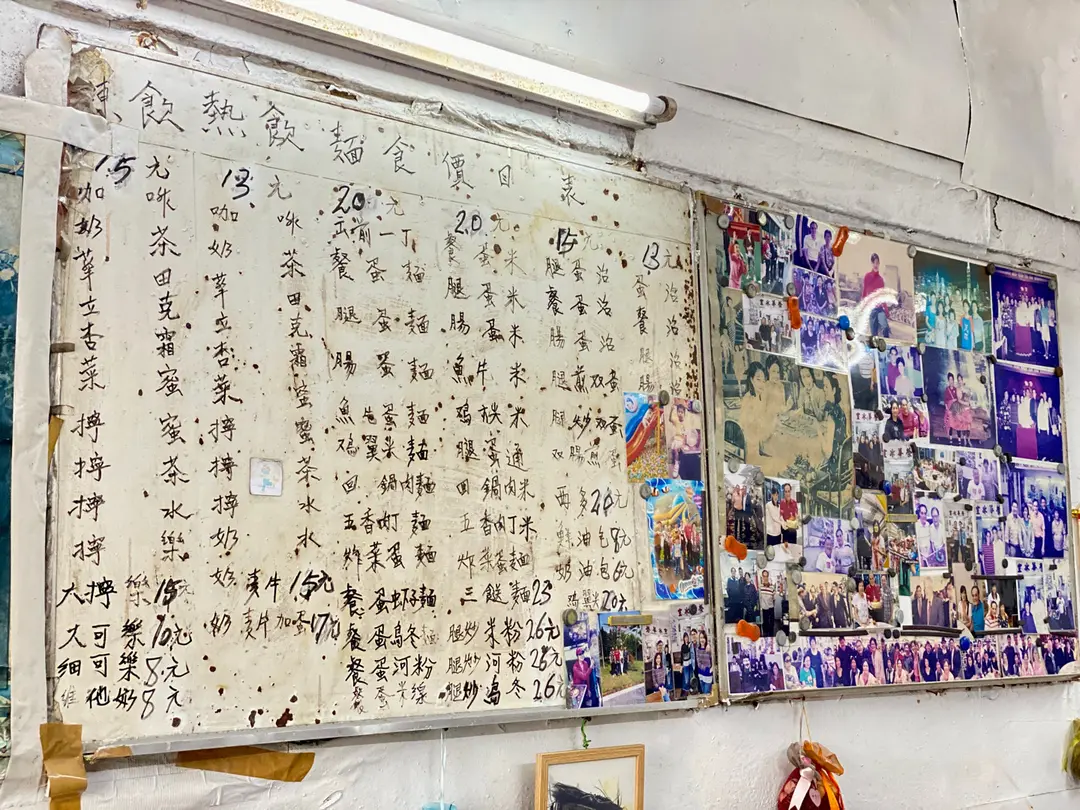 凍飲熱飲麵食價目表
15元
咖啡
奶茶
華田
立克
杏霜
菜蜜
檸蜜
檸茶
檸水
檸樂
大檸樂15元
大可樂10元
細可樂8元
維他奶8元
13元
咖啡
奶茶
華田
立克
杏霜
菜蜜
檸蜜
檸茶
檸水
奶水
奶麦牛15元
奶麦牛加蛋17元
20元
出前一丁
餐蛋麵
腿蛋麵
腸蛋麵
魚牛蛋麵
鸡翼米麵
回鍋肉麵
五香肉丁麵
炸菜蛋麵
餐蛋虾子麵
餐蛋烏冬
餐蛋河粉
餐蛋米線
20元
餐蛋米
腿蛋米
腸蛋米
魚牛米
鸡扒米
腿蛋通
回鍋肉米
五香肉丁米
炸菜蛋麵
三餸麵23
腿炒米粉26元
腿炒河粉26元
腿炒烏冬26元
15元
腿蛋治
餐蛋治
腸蛋治
腿煎双蛋
腿炒双蛋
双腸煎蛋
西多24元
油包8元
奶油包6元
鸡翼米20元
13元
蛋治
餐治
腿治
腸治